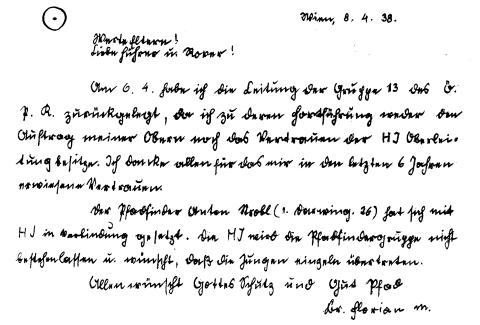 Wien, 8. 4. 38.
Werte Eltern!
Liebe Führer u. Rover!
Am 6. 4. habe ich die Leitung der Gruppe 13 des Ö.
P. K. zurückgelegt, da ich zu deren Fortführung weder den
Auftrag meiner Obern noch das Vertrauen der HJ Oberlei-
tung besitze. Ich danke allen für das mir in den letzten 6 Jahren
erwiesene Vertrauen.
Der Pfadfinder Anton Strobl (1. Darwing. 26) hat sich mit
HJ in Verbindung gesetzt. Die HJ wird die Pfadfindergruppe nicht
bestehenlassen u. wünscht, daß die Jungen einzeln übertreten.
Allen wünscht Gottes Schutz und Gut Pfad
Br. Florian m.